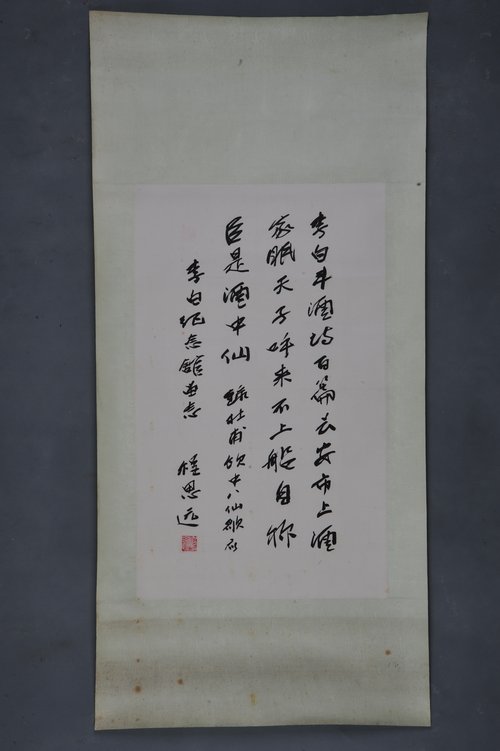 李白斗酒诗百篇长安市上酒
家眠天子呼来不上船自称
臣是酒中仙 录杜甫饮中八仙歌句
李白纪念馆留念 程思远